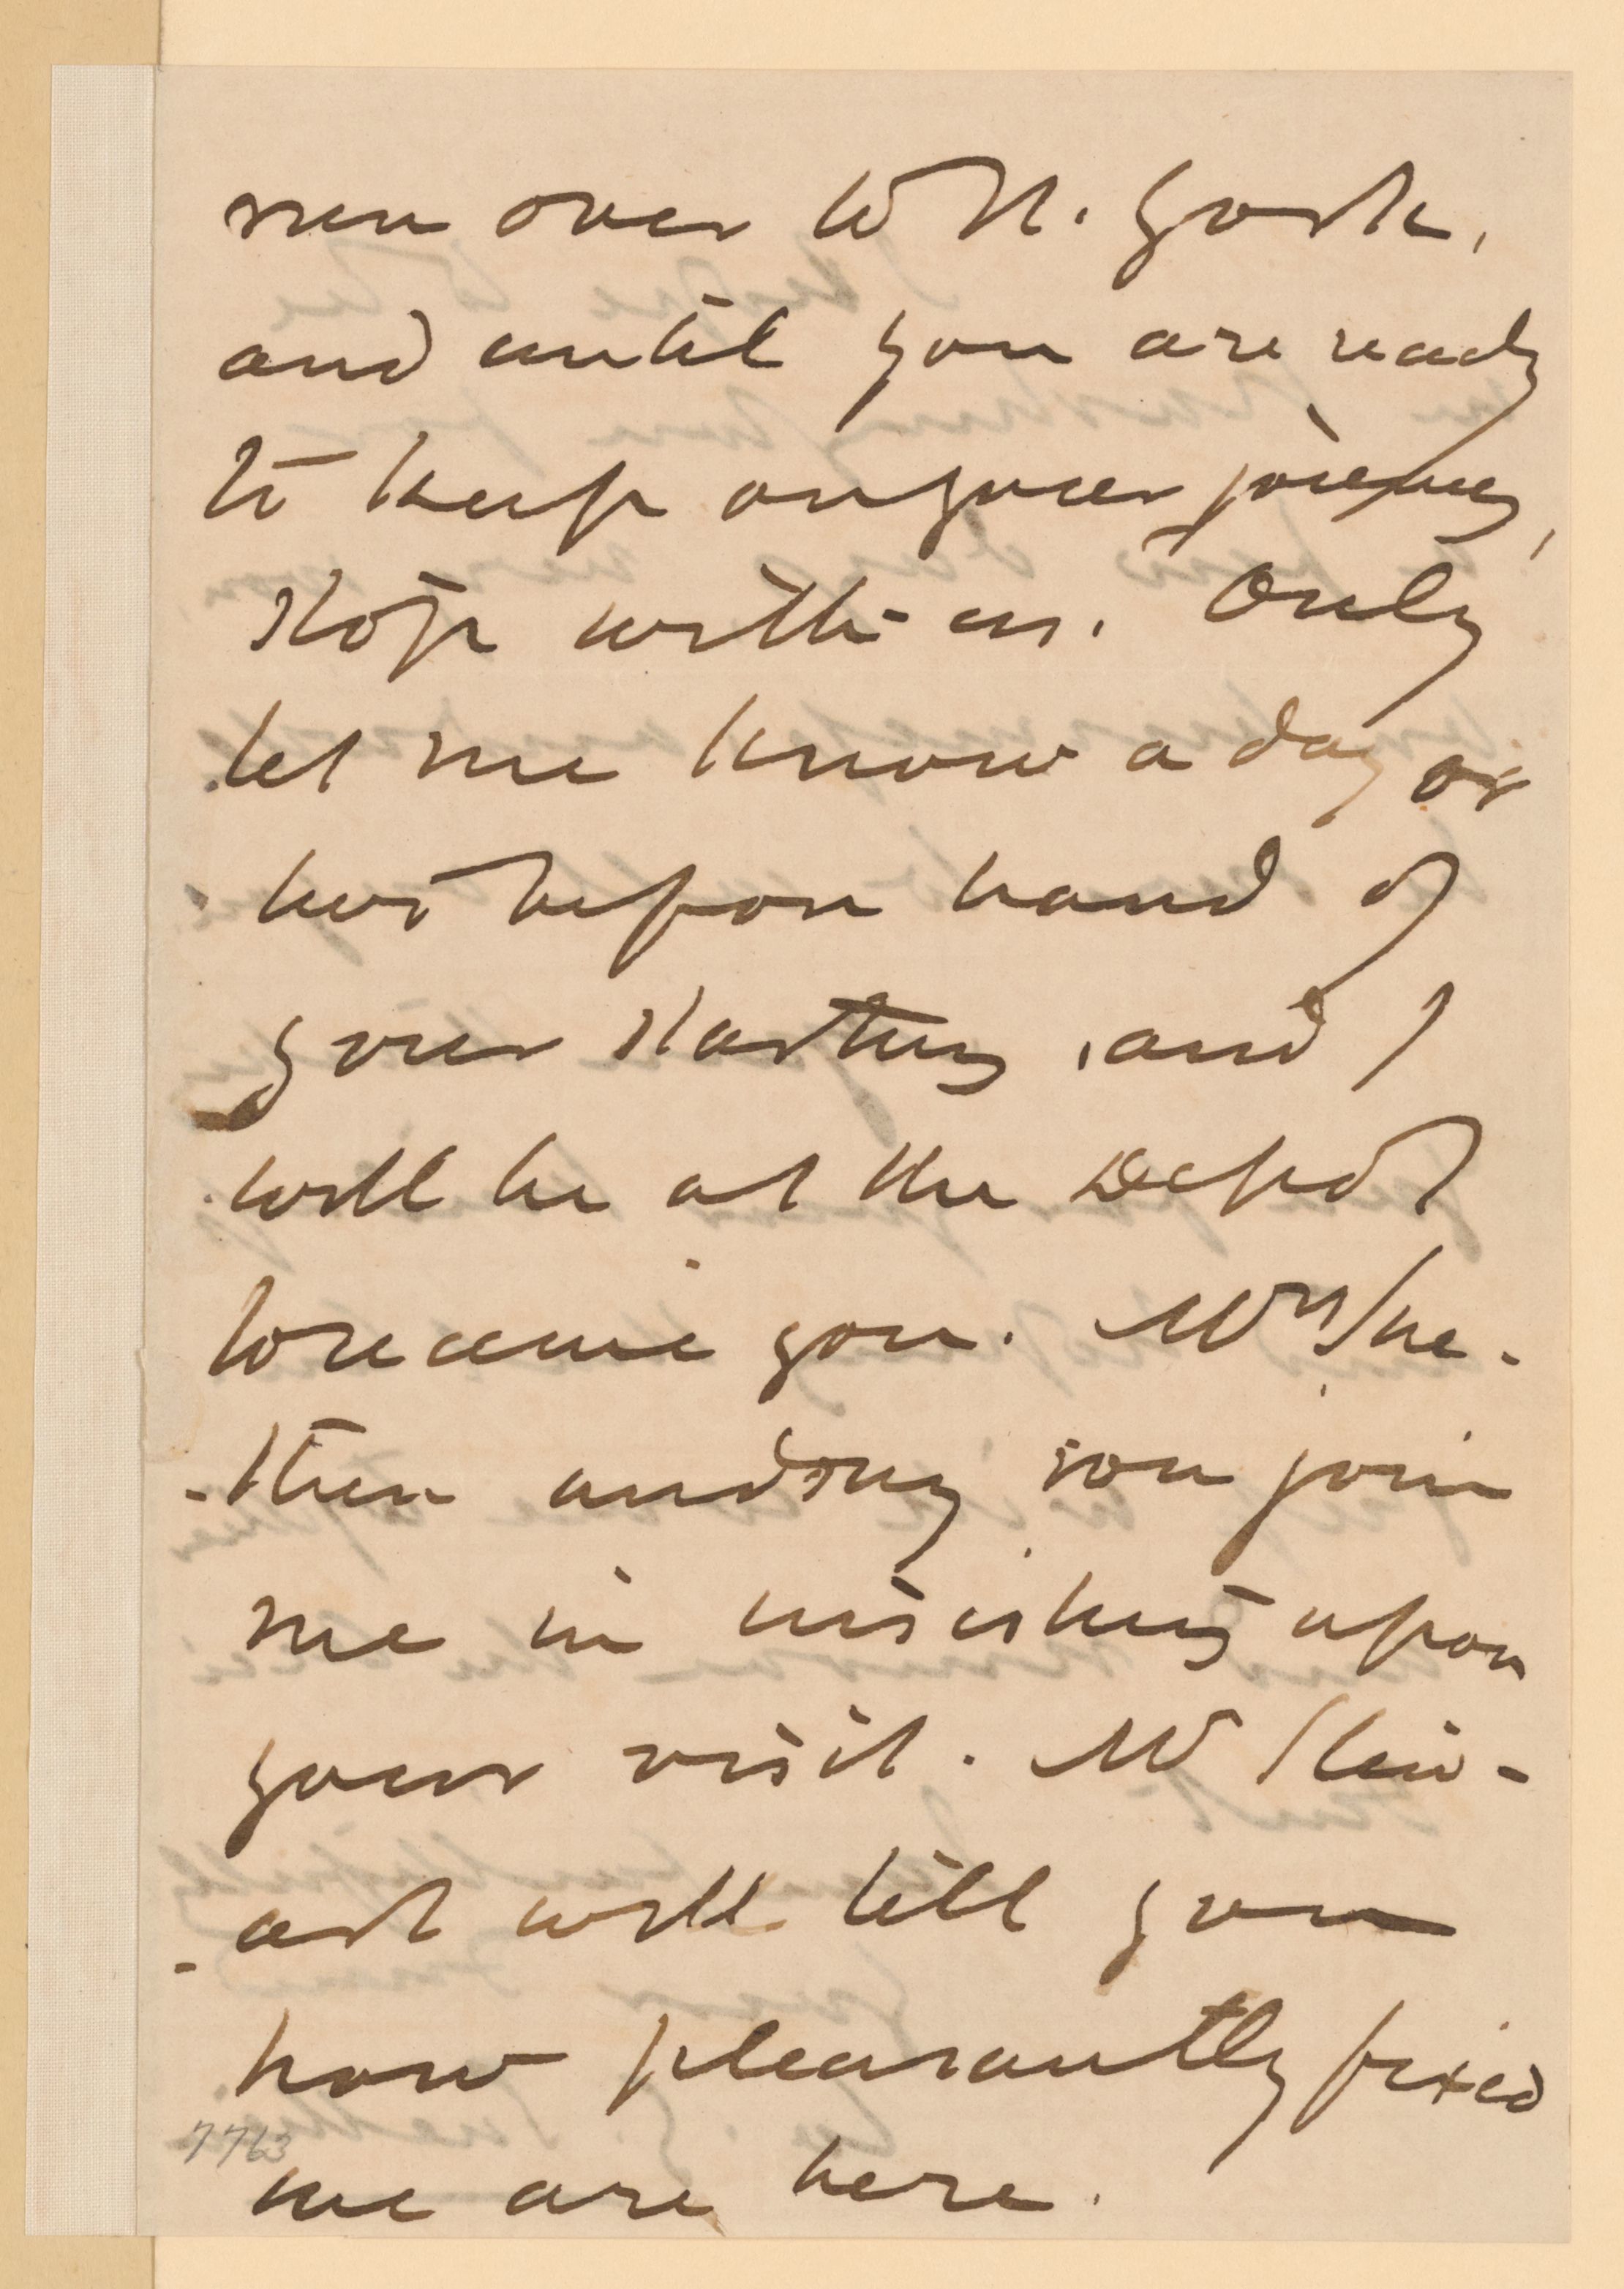 run over to N. York,
and until you are ready
to keep on your journey,
stop with us. Only
let me know a day or
two before hand of
your starting, and I
will be at the Depot
to receive you. Mrs Sne-
-then and my son join
me in insisting upon
your visit. Mr Stew-
-art will tell you
how pleasantly fixed
we are here.
7763